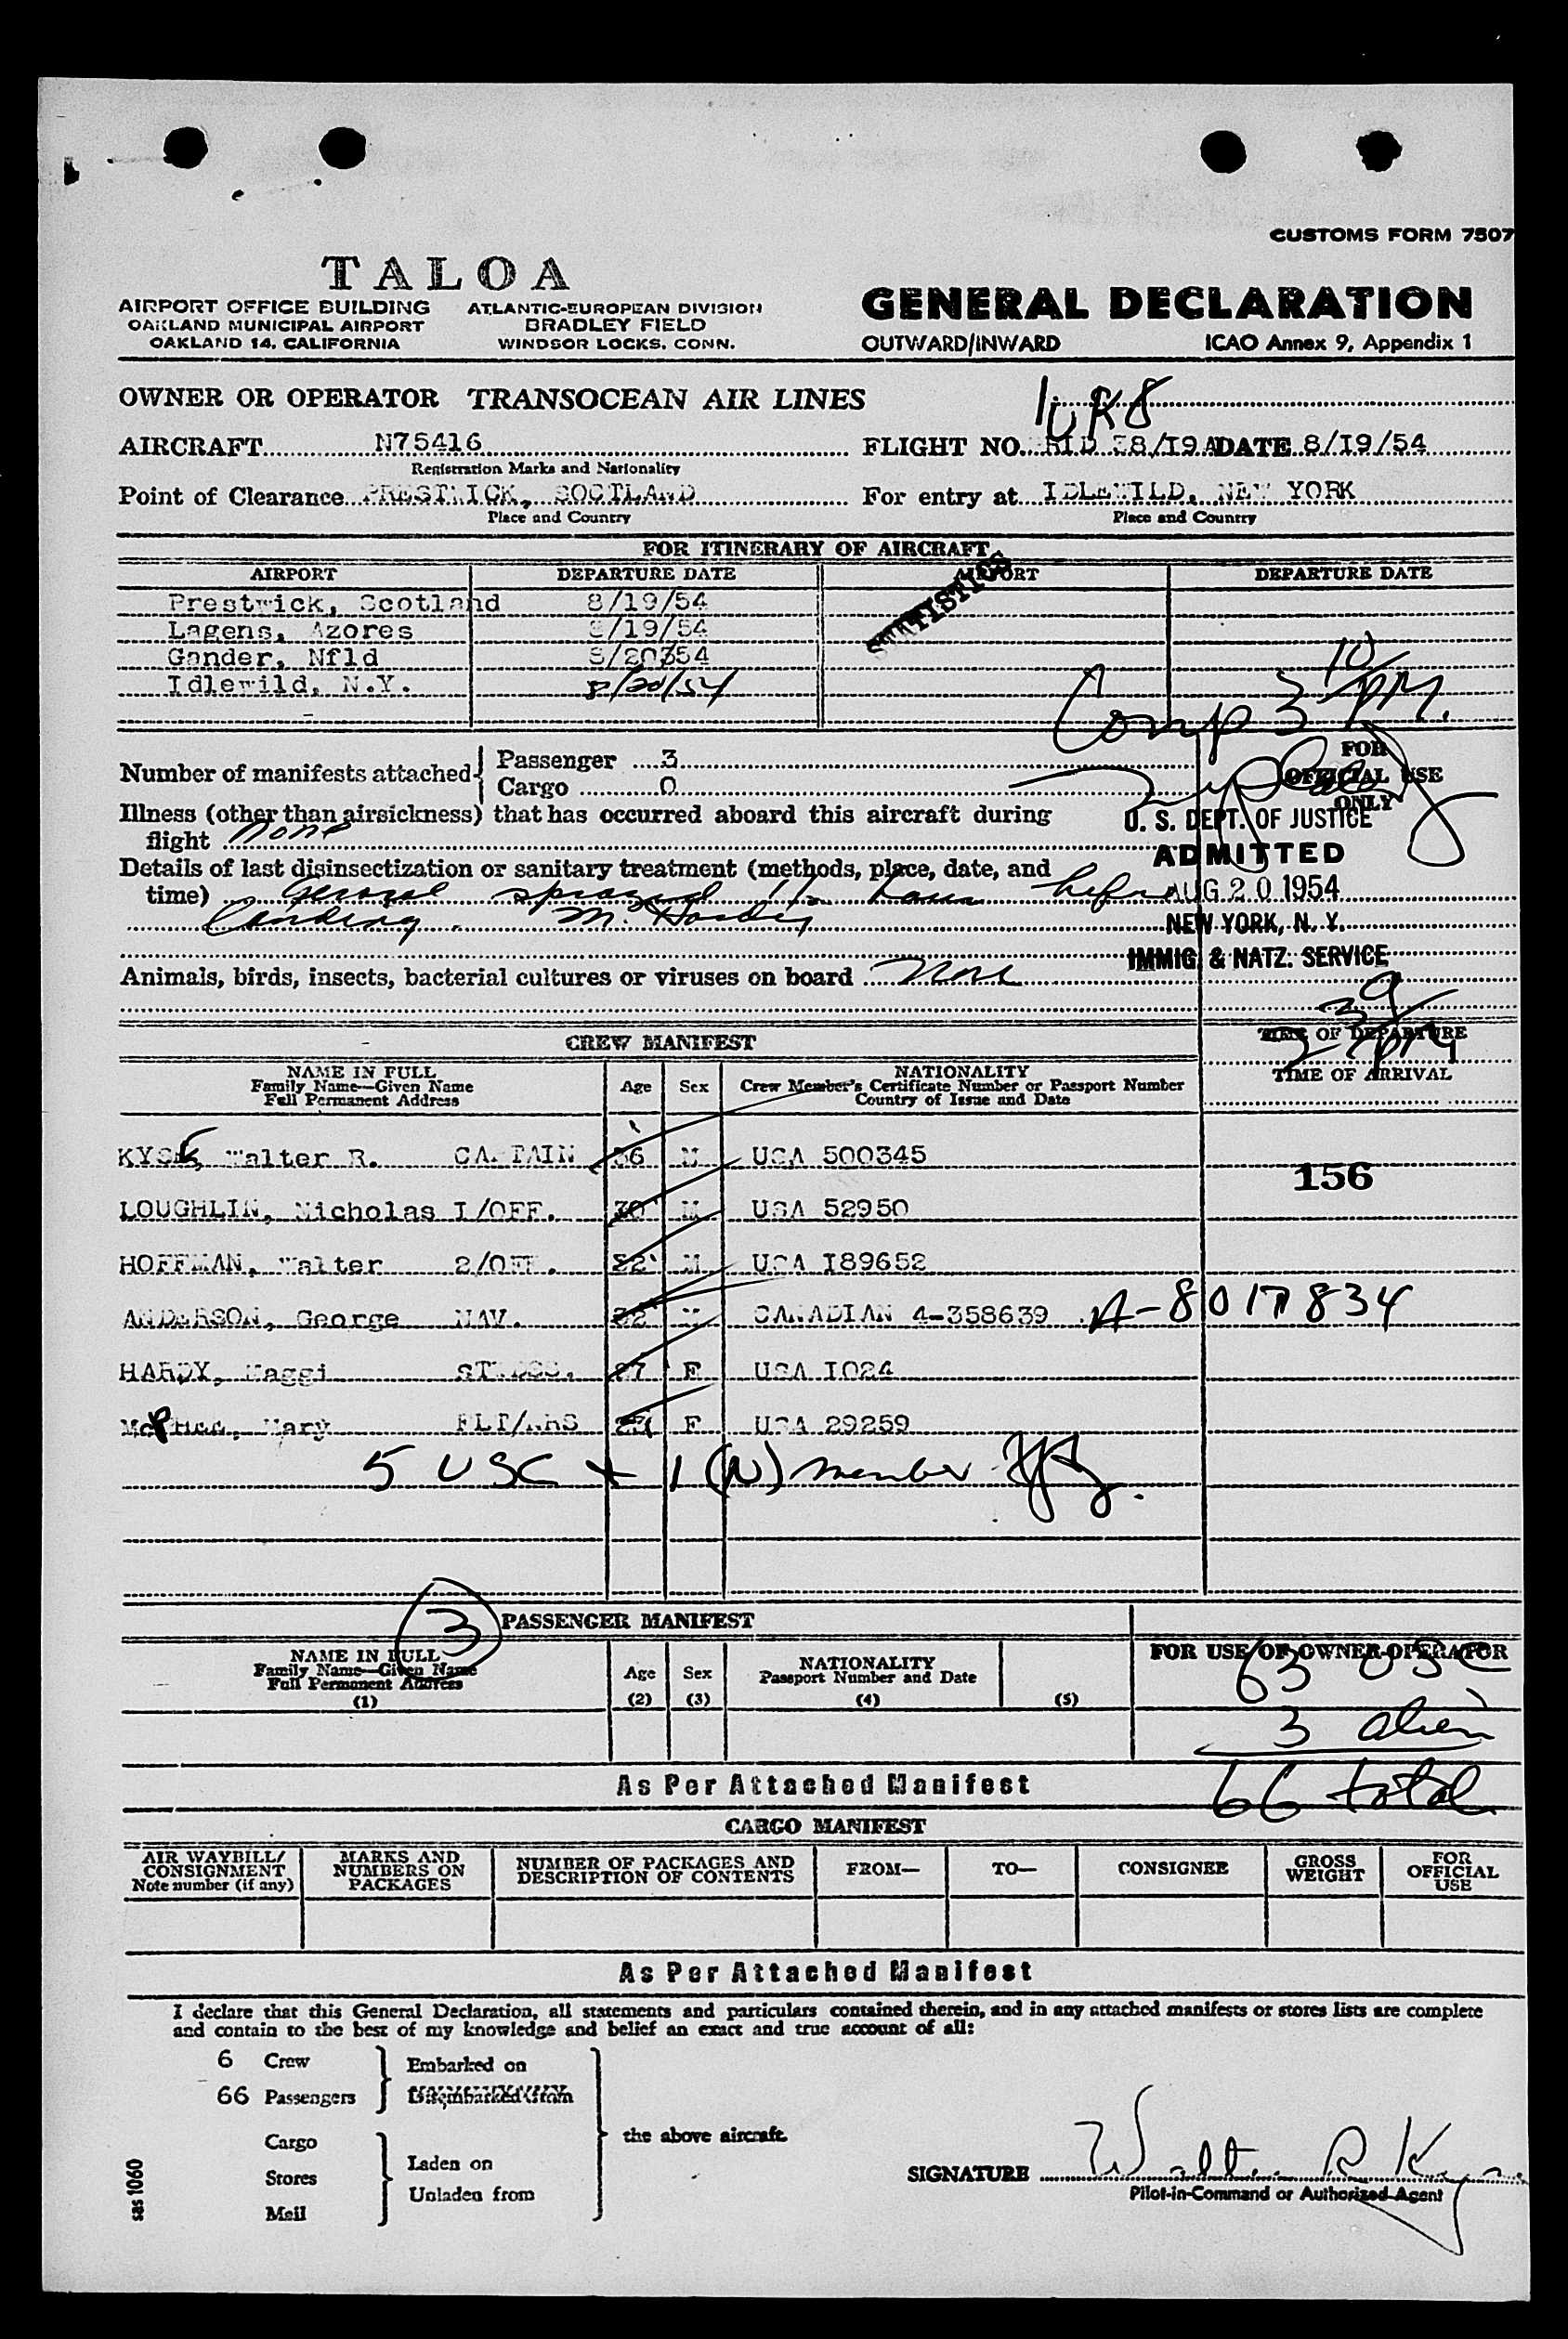 CUSTOMS FORM 7507
TALOA
AIRPORT OFFICE BUILDING
OAKLAND MUNICIPAL AIRPORT
OAKLAND 14, CALIFORNIA
ATLANTIC-EUROPEAN DIVISION
BRADLEY FIELD
WINDSOR LOCKS, CONN.
GENERAL DECLARATION
OUTWARD/INWARD ICAO Annex 9, Appendix 1
OWNER OR OPERATOR TRANSOCEAN AIR LINES
AIRCRAFT N75416 FLIGHT NO. 38/I9A DATE 8/I9/54
Registration Marks and Nationality
Point of Clearance PRESTWICK, SOCTLAND For entry at IDLEWILD, NEW YORK
Place and Country Place and Country
FOR ITINERARY OF AIRCRAFT
AIRPORT DEPARTURE DATE AIRPORT DEPARTURE DATE
STATISTICS
Prestwick, Scotland 8/19/54
Lagens, Azores 8/19/54
Gander, Nfld 8/20354
Idlewild, N.Y. 8/20/54
Comp 3 10/PM.
Number of manifests attached Passenger 3
Cargo 0
FOR OFFICIAL USE ONLY
Illness (other than airsickness) that has occurred aboard this aircraft during
flight none
U. S. DEPT. OF JUSTICE
ADMITTED
AUG 20 1954
NEW YORK, N. Y.
IMMIG. & NATZ. SERVICE
Details of last disinsectization or sanitary treatment (methods, place, date, and
time) sprayed 1/2 hour before
landing. M. Hardy
Animals, birds, insects, bacterial cultures or viruses on board None
CREW MANIFEST
TIME OF DEPARTURE
TIME OF ARRIVAL
NAME IN FULL
Family Name—Given Name
Full Permanent Address
Age Sex
NATIONALITY
Crew Member's Certificate Number or Passport Number
Country of Issue and Date
KYSE, Walter R. CAPTAIN 36 M USA 500345
156
LOUGHLIN, Nicholas I/OFF. 30 M USA 52950
HOFFMAN, Walter 2/OFF. 32 M USA I89652
ANDERSON, George NAV. 32 M CANADIAN 4-358639 A-8017834
HARDY, Maggi STWDSS. 27 F USA I024
McPHEE, Mary FLT/ F USA 29259
5 USC + 1 (N) member
3
PASSENGER MANIFEST
NAME IN FULL
Family Name—Given Name
Full Permanent Address
(1)
Age
(2)
Sex
(3)
NATIONALITY
Passport Number and Date
(4)
(5)
FOR USE OF OWNER-OPERATOR
63 USC
3 alien
66 total
As Per Attached Manifest
CARGO MANIFEST
AIR WAYBILL/
CONSIGNMENT
Note number (if any)
MARKS AND
NUMBERS ON
PACKAGES
NUMBER OF PACKAGES AND
DESCRIPTION OF CONTENTS
FROM—
TO—
CONSIGNEE
GROSS
WEIGHT
FOR
OFFICIAL
USE
As Per Attached Manifest
I declare that this General Declaration, all statements and particulars contained therein, and in any attached manifests or stores lists are complete
and contain to the best of my knowledge and belief an exact and true account of all:
6 Crew
66 Passengers
Embarked on
Disembarked from
Cargo
Stores
Mail
Laden on
Unladen from
the above aircraft.
SIGNATURE Walter R Kyse
Pilot-in-Command or Authorized Agent
sas 1060